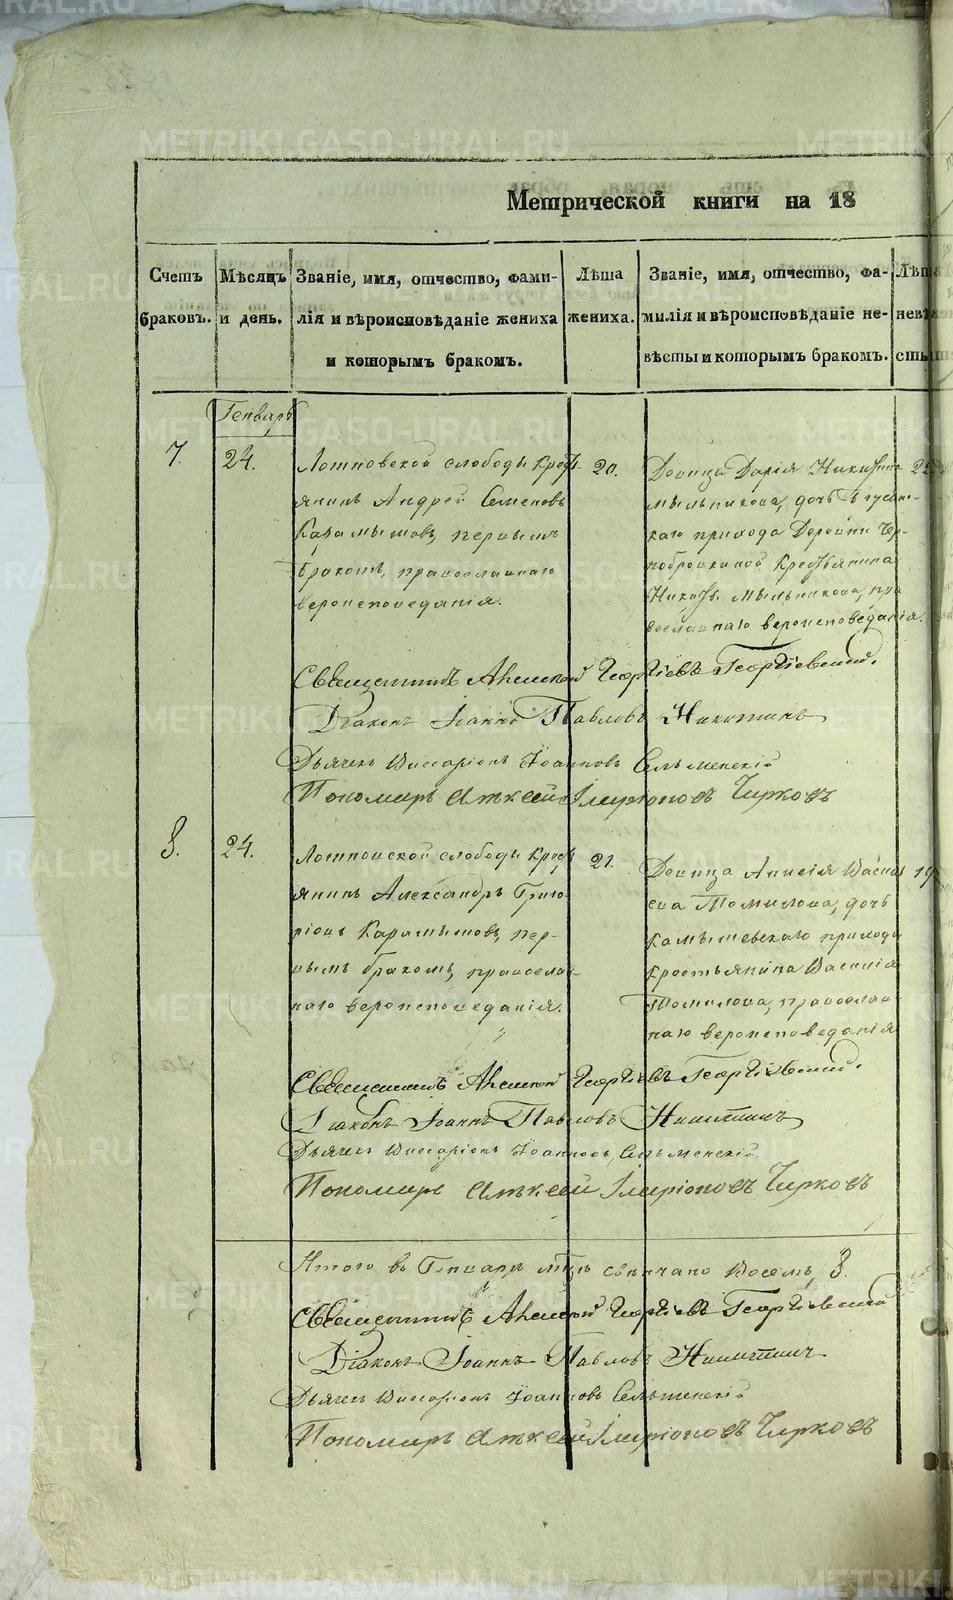 METRIKI.GASO-URAL.RU
Метрической книги на 18
Счетъ браковъ.
Мѣсяцъ и день.
Званіе, имя, отчество, фами-
лія и вѣроисповѣданіе жениха
и которымъ бракомъ.
Лѣта
жениха.
Званіе, имя, отчество, фа-
милія и вѣроисповѣданіе не-
вѣсты и которымъ бракомъ.
Генварь
7.
24.
слободы Крест
янинъ Андрей Семеновъ
Карамышовъ, первымъ
бракомъ, православнаго
вероисповеданія.
20.
Девица Дарія Никитина
Мыльникова, дочь
прихода Деревни
Крестьянина
Никиты Мыльникова, пра
вославнаго вероисповеданія.
Священникъ Алексей Георгіевъ Георгіевскій.
Діаконъ Іоаннъ Павловъ Никитинъ
Дьячекъ Виссаріонъ Іоанновъ Сельменскій
Пономарь Алексей Иларіоновъ Чирковъ
8.
24.
слободы Крест
янинъ Александръ Григо
ріевъ Карамышовъ, пер-
вымъ бракомъ, православ-
наго вероисповеданія.
21.
Девица Анисія Васил
ева Томилова, дочь
Камышевскаго прихода
крестьянина Василія
Томилова, православ-
наго вероисповеданія
19
Священникъ Алексей Георгіевъ Георгіевскій.
Діаконъ Іоаннъ Павловъ Никитинъ
Дьячекъ Виссаріонъ Іоанновъ Сельменскій.
Пономарь Алексей Иларіоновъ Чирковъ
Итого въ Генваре мцѣ свенчано Восемь, 8.
Священникъ Алексей Георгіевъ Георгіевскій
Діаконъ Іоаннъ Павловъ Никитинъ
Дьячекъ Виссаріонъ Іоанновъ Сельменскій
Пономарь Алексей Иларіоновъ Чирковъ